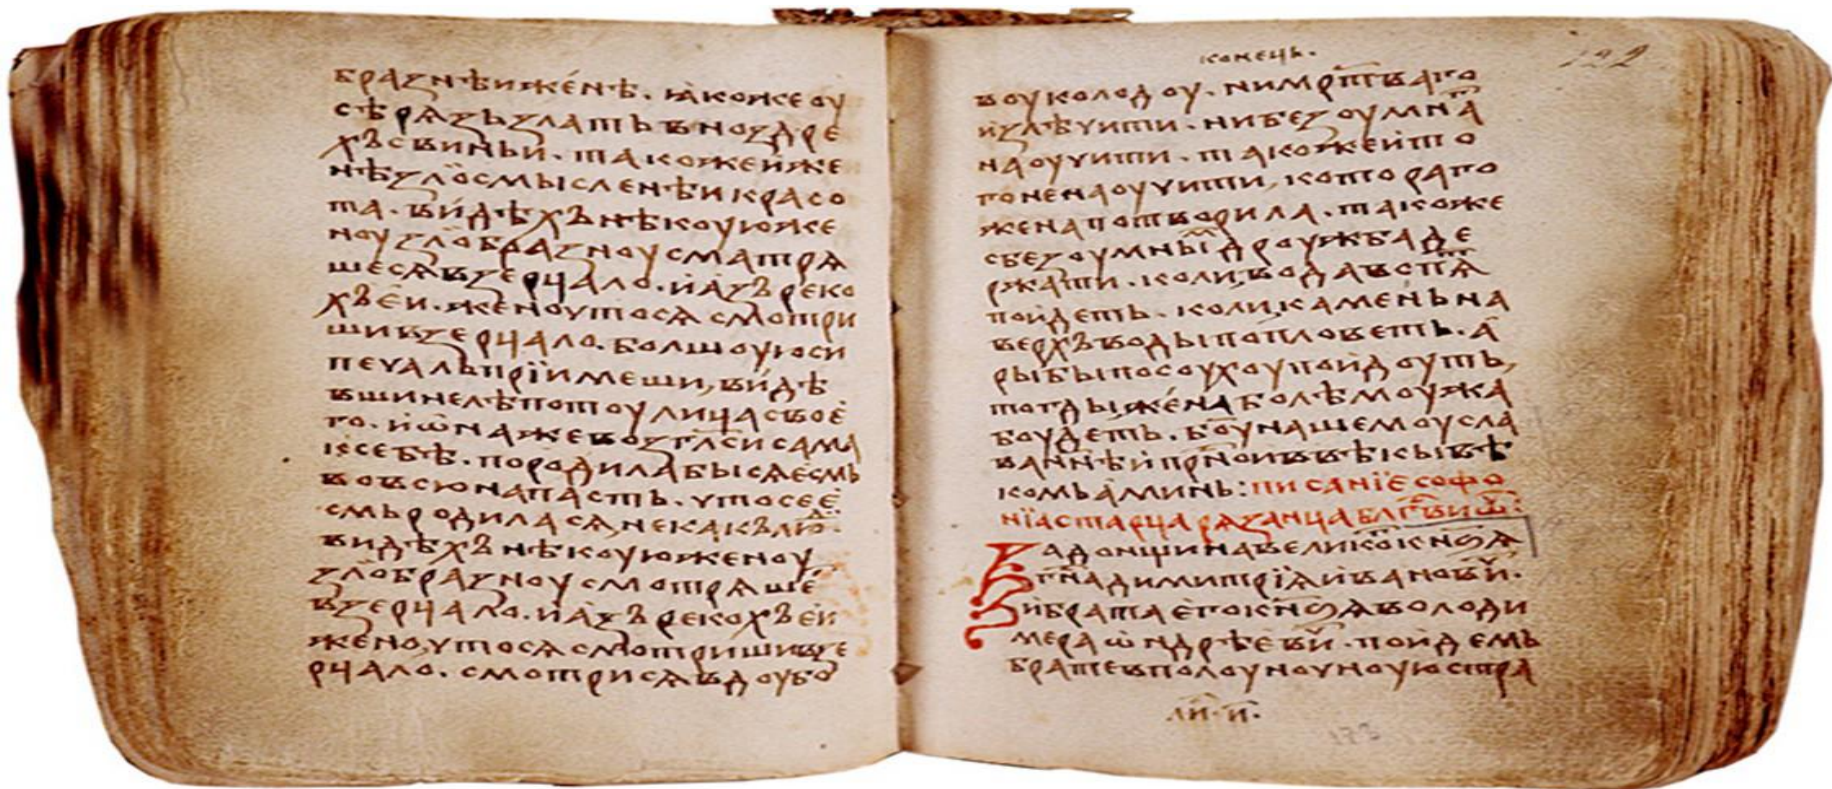 бразнѣижéнѣ. ꙗкожеоу
сѣрѧзьзлатьвноздре
хъсвиньи. такожеиже
нѣзлосмысленѣикрасо
та. видѣхънѣкоуюже
ноузлобразноусматрѧ
шесѧвзерцало. иазъреко
хъеи. женоутосѧсмотри
шивзерцало. болшоуюси
печальпріимеши, видѣ
вшинелѣпотоулицасвое
го. иѡнажевозгл҃сисама
ксебѣ. породилабысѧесмь
вовсюнапасть. чтосее
смьродиласѧ, некакъли
видѣхънѣкоуюженоу
злобразноусмотрѧше
взерцало. иазърекохъеи
жено, чтосѧсмотришивзе
рцало. смотрисѧвдоубо
конець.
122
воуколодоу. нимрт҃ваго
излѣчити. нибезоумна
наоучити. такожеито
гоненаоучити, которато
женапотворила. такоже
сбезоумнымдроужбаде
ржати. коливодавспѧ
поидеть. коликаменьна
верхъводыпопловеть. а
рыбыпосоухоупоидоуть,
тогдыиженаболѣмоужа
боудеть. б҃оунашемоусла
ваннѣипр҃ноиввѣкывѣ
комьаминь: писаніесофо
ніастарцарѧзанцабл҃гвиѿ:
Задонщинавеликогокн҃зѧ
г҃надимитріѧивановичѧ.
ибратаегокн҃зѧволоди
мераѡндрѣевичѧ. поидемь
братевполоуноуноуюстра
ли. и.